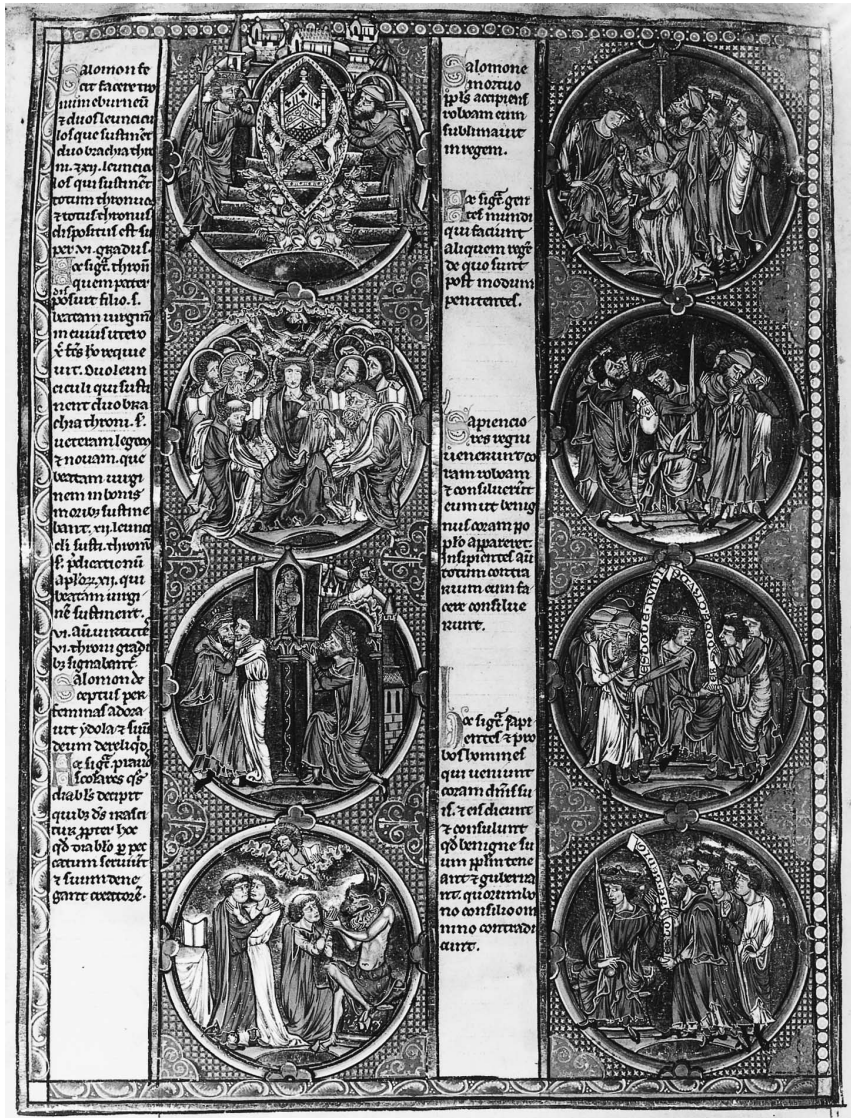 Salomon fe
cit facere tro
num eburneū
⁊ duos leuncu
los que sustinēt
duo brachia thro
ni. ⁊ xii. leuncu
los qui sustinēt
totum thronum
⁊ totus thronus
dispositus est su
per .vi. gradus.
thronū
quem pater
posuit filio .s.
beatam uirginē
in cuius utero
requie
uit. Duo leun
culi qui susti
nent duo bra
chia throni .s.
ueteram legem
⁊ nouam. que
beatam uirgi
nem in bonis
moribꝰ sustine
bant. xii. leuncu
li thronū
.s.
xii. qui
beatam uirgi
nē sustinent.
.vi.
.vi. throni gradi
bꝰ signabant̄
Salomon de
ceptus per
feminas adora
uit ydola ⁊ suū
deum
sigt̄. prauos
scolares q̄s
diabl̄s decipit
quibꝰ d̄s irasci
tur ꝓpter hoc
qd̄ diablo ꝑ pec
catum seruiūt
⁊ suum dene
gant creatorē.
Salomone
mortuo
ppl̄s accipiens
roboam eum
sublimauit
in regem.
sigt̄ gen
tes mundi
qui faciunt
aliquem regē
de quo sunt
post modum
penitentes.
Sapiencio
res regni
uenerunt co
ram roboam
⁊ consiluerūt
eum ut benig
nus coram po
plo appareret.
Insipientes aū
totum contra
rium eum fa
cere consilue
runt.
Hec sigt̄ sapi
entes ⁊ pro
bos homines
qui ueniunt
coram
⁊ eis dicunt
⁊ consulunt
qd̄ benigne su
um ppl̄m tene
ant ⁊ guberna
nt. quorum bo
no consilio om
nino contradi
cunt.